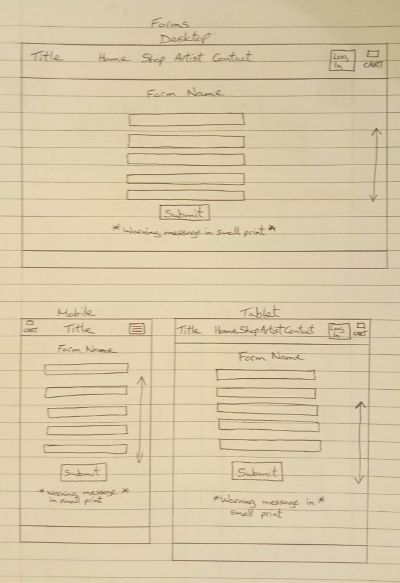 Forms
Desktop
Title Home Shop Artist Contact Log In CART
Form Name
Submit
*Warning message in small print*
Mobile
CART Title
Form Name
Submit
*Warning message*
in small print
Tablet
Title Home Shop Artist Contact Log In CART
Form Name
Submit
*Warning message in*
small print